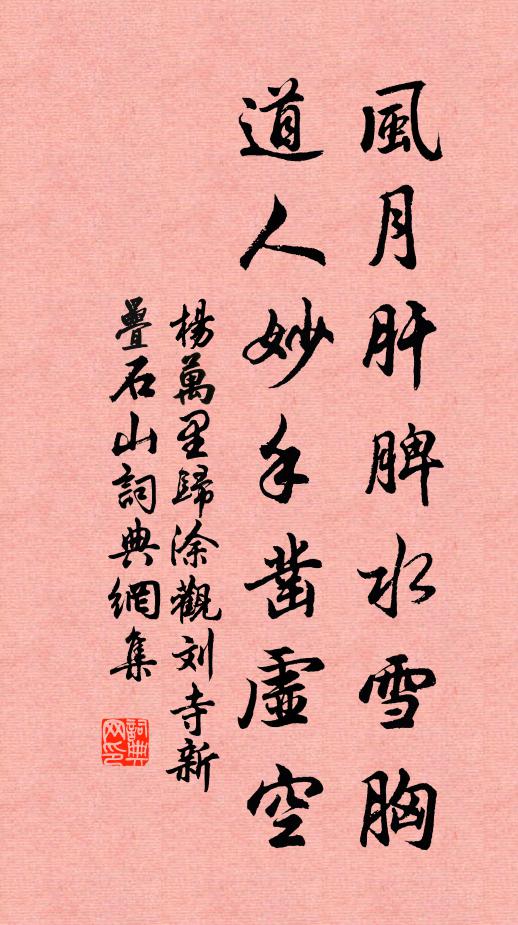 風月肝脾水雪胸
道人妙手凿虛空
楊萬里歸涂觀刘寺新
疊石山詞典網集
詞典
网印